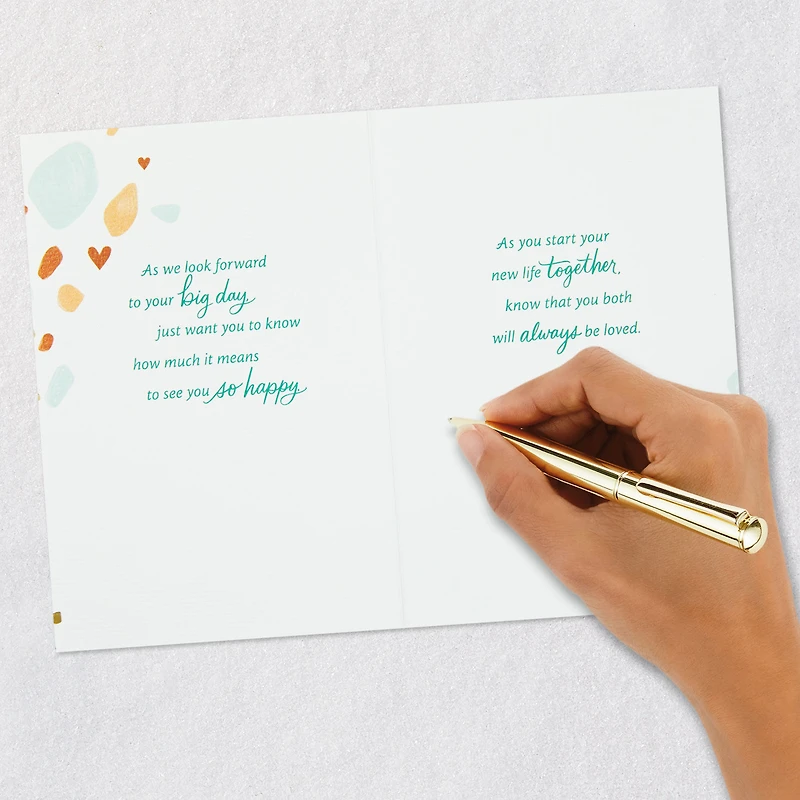 As we look forward
to your big day,
just want you to know
how much it means
to see you so happy
As you start your
new life together,
know that you both
will always be loved.